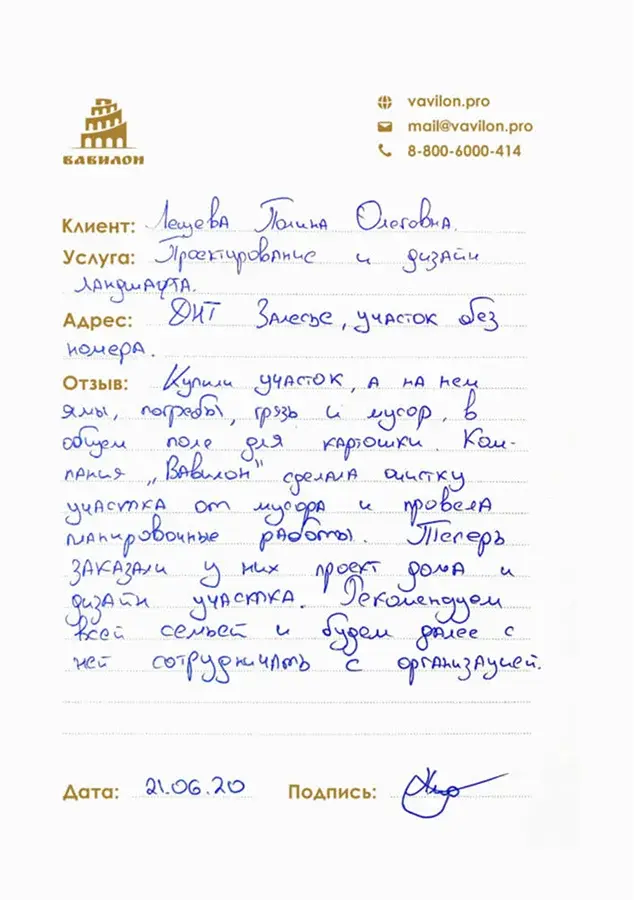 vavilon.pro
mail@vavilon.pro
ВАВИЛОН
8-800-6000-414
Клиент: Лещева Полина Олеговна.
Услуга: Проектирование и дизайн
ландшафта.
Адрес: ДНТ Залесье, участок без
номера.
Отзыв: Купили участок, а на нем
ямы, погребы, грязь и мусор, в
общем поле для картошки. Ком-
пания „Вавилон" сделала очистку
участка от мусора и провела
планировочные работы. Теперь
заказали у них проект дома и
дизайн участка. Рекомендуем
всей семьей и будем далее с
ней сотрудничать с организацией.
Дата: 21.06.20 Подпись: